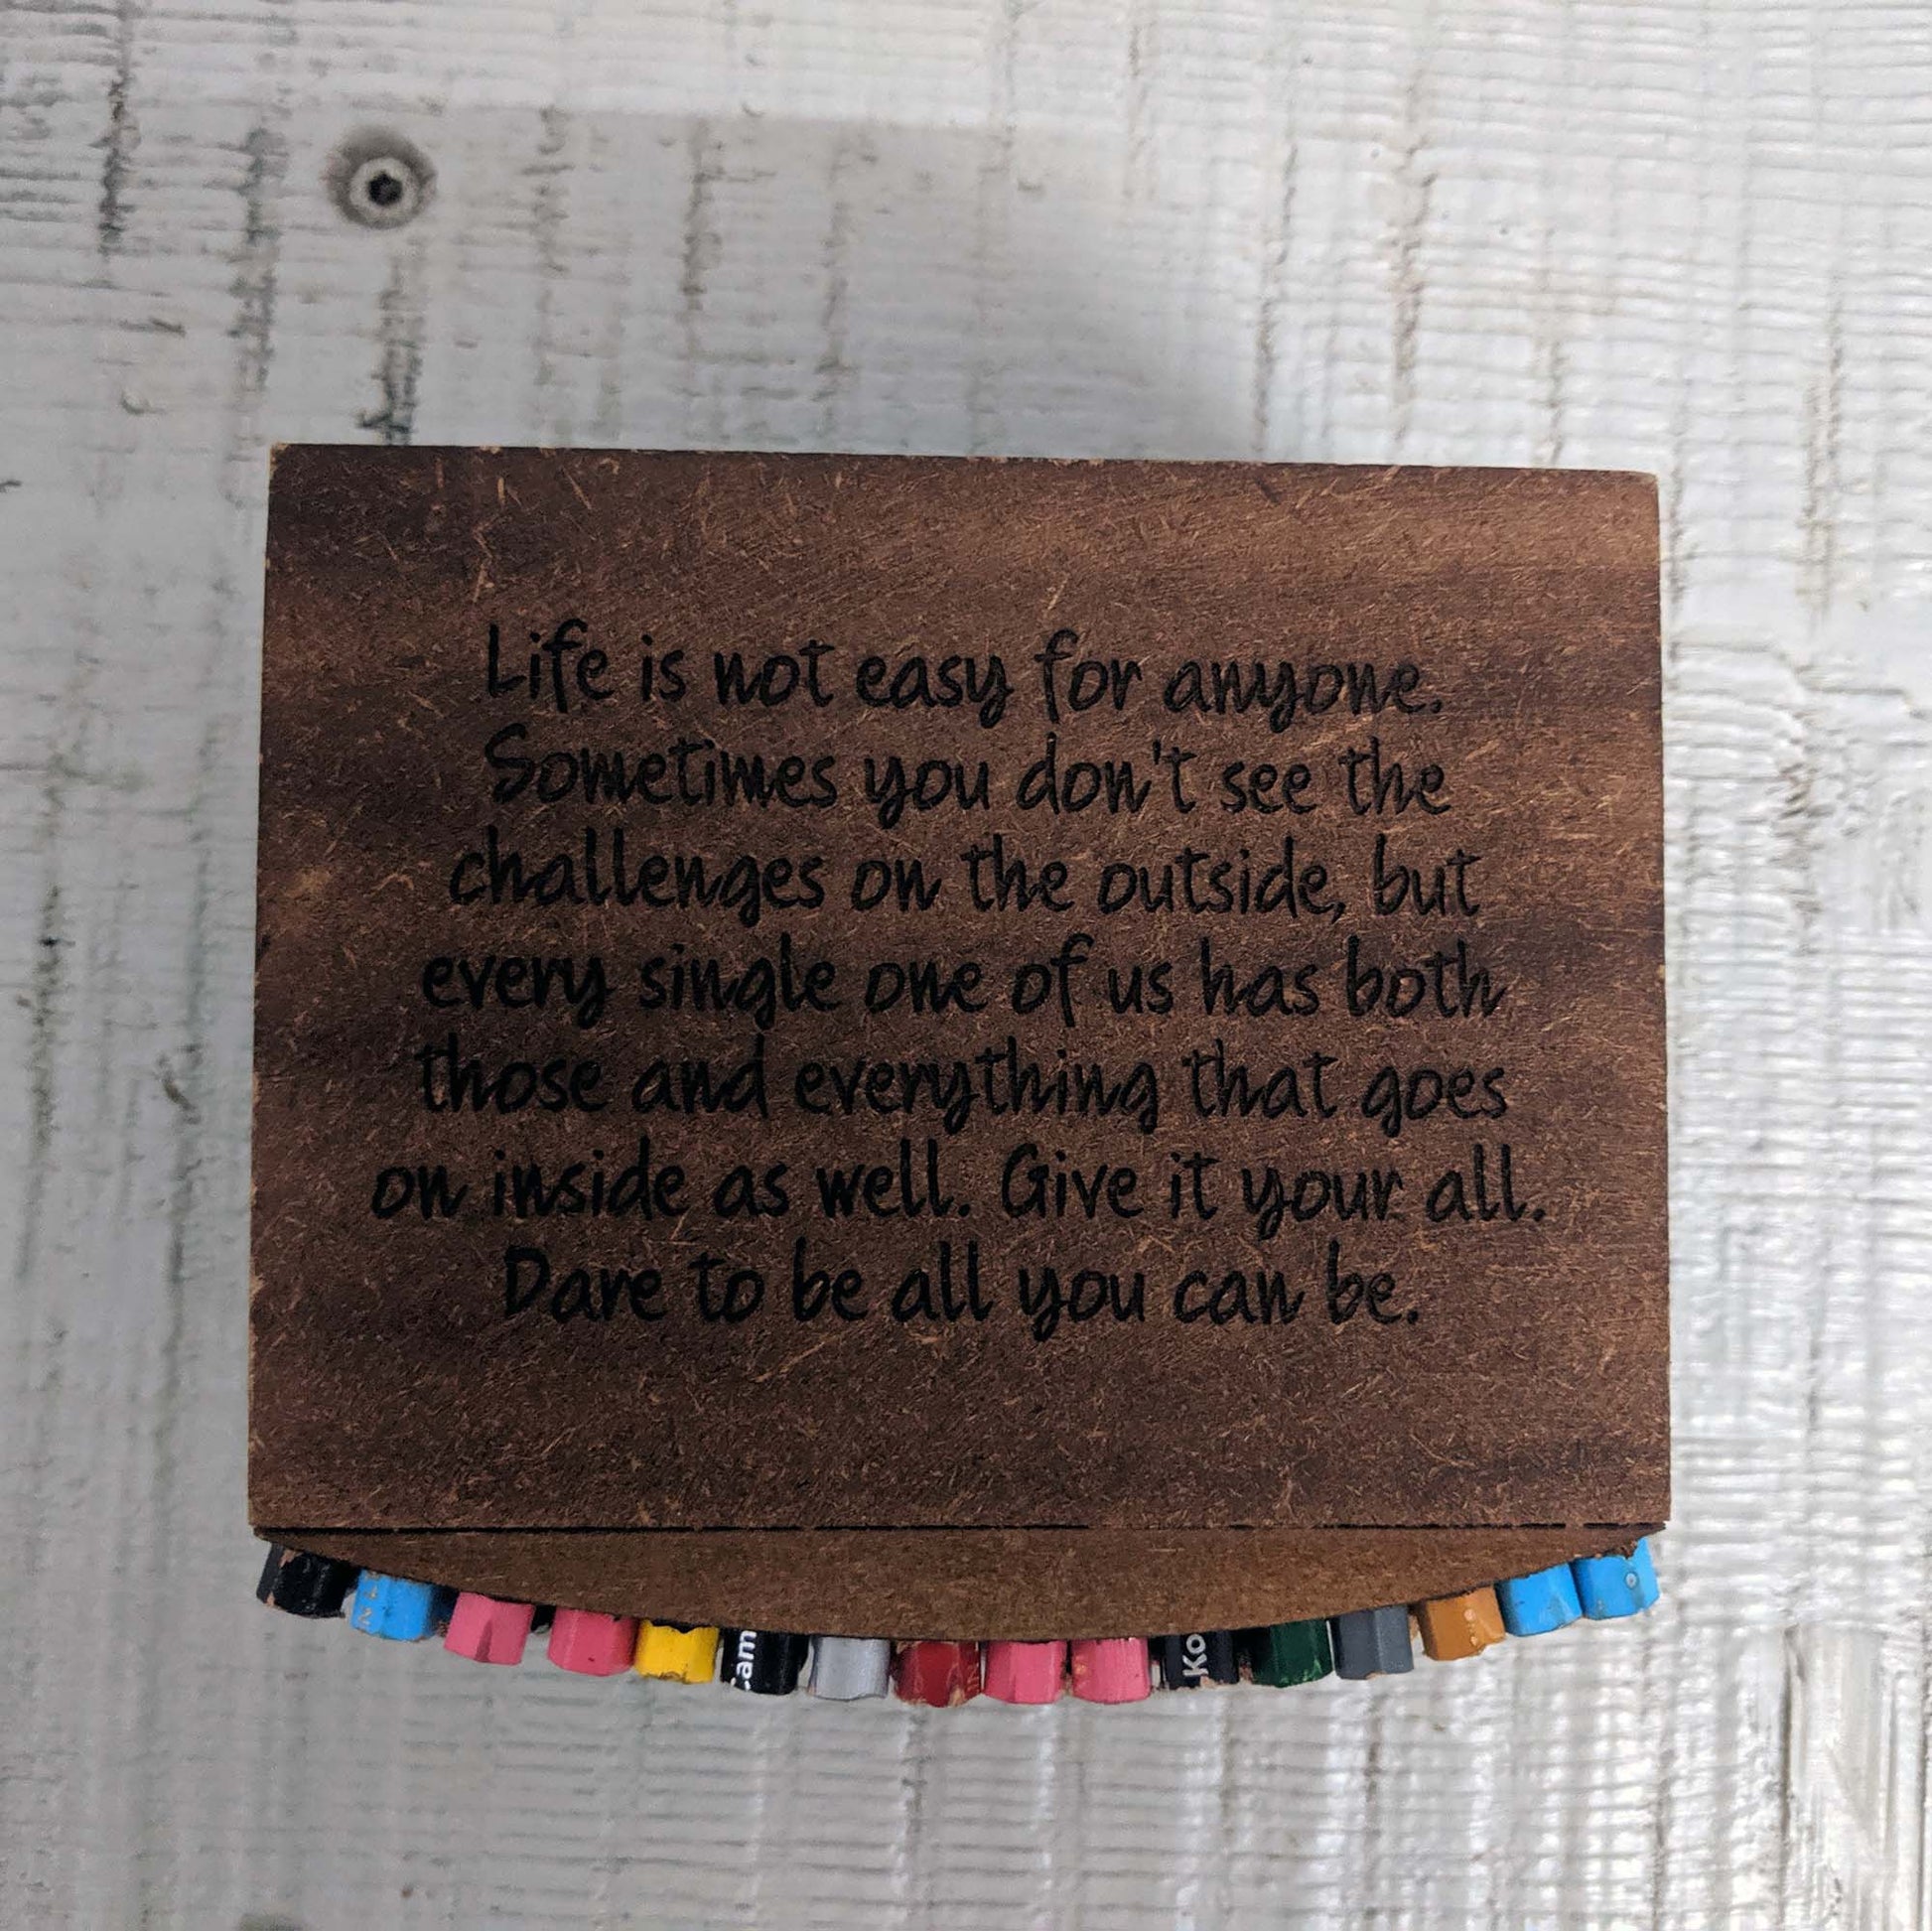 Life is not easy for anyone.
Sometimes you don't see the
challenges on the outside, but
every single one of us has both
those and everything that goes
on inside as well. Give it your all.
Dare to be all you can be.
am
Ko